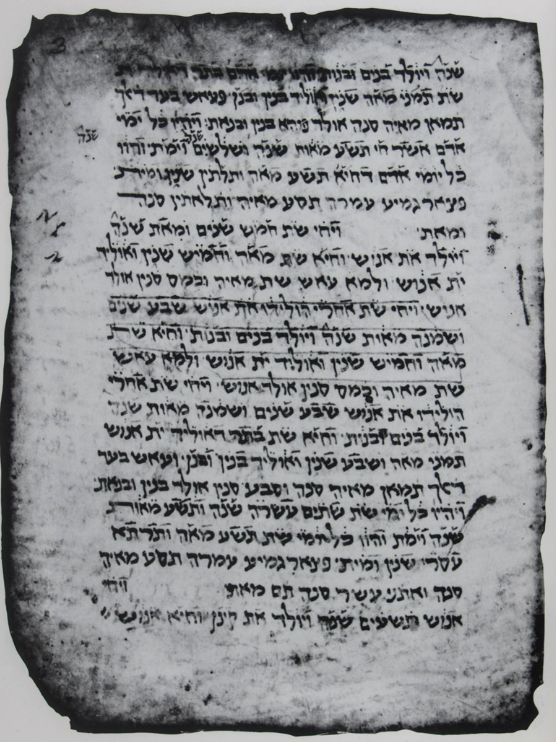 שנה ויולד בנים ובנות
שת תמני מאה שנין ואוליד בנין ובנן פעאש בעד דאך
תמאן מאיה סנה אולד פיהא בנין ובנאת ויהיו כל ימי
אדם אשר חי תשע מאות שנה ושלשים וימת והוו
כל יומי אדם דחיא תשע מאה ותלתין שנין ומית
פצאר גמיע עמרה תסע מאיה ותלאתין סנה
ומאת ויחי שת חמש שנים ומאת שנה
ויולד את אנוש וחיא שת מאה וחמיש שנין ואוליד
ית אנוש ולמא עאש שת מאיה וכמס סנין אולד
אנוש ויחי שת אחרי הולידו את אנוש שבע שנים
ושמנה מאות שנה ויולד בנים ובנות וחיא שת
מאה וחמיש שנין ואוליד ית אנוש ולמא עאש
שת מאיה וכמס סנין אולד אנוש ויחי שת אחרי
הולידו את אנוש שבע שנים ושמנה מאות שנה
ויולד בנים ובנות וחיא שת בתר דאוליד ית אנוש
תמני מאה ושבע שנין ואוליד בנין ובנן ועאש בעד
דאך תמאן מאיה סנה וסבע סנין אולד בנין ובנאת
ויהיו כל ימי שת שתים עשרה שנה ותשע מאות
שנה וימת והוו כל יומי שת תשע מאה ותרתא
עסרי שנין ומית פצאר גמיע עמרה תסע מאיה
סנה ואתני עשר סנה תם מאת ויחי
אנוש תשעים שנה ויולד את קינן וחיא אנוש
שנה